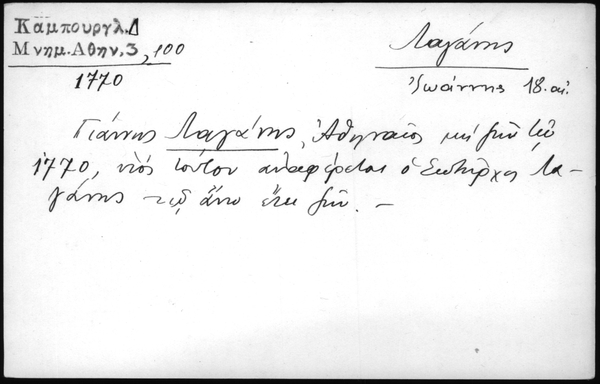 Καμπουργλ. Δ
Μνημ. Αθην. 3, 100
1770
Λαγάνης
Ἰωάννης 18. αἰ.
Γιάννης Λαγάνης, Ἀθηναῖος μὴ ζῶν τῷ
1770, υἱὸς τούτου ἀναφέρεται ὁ Λα-
γάνης τῷ ἄνω ἔτει ζῶν. –